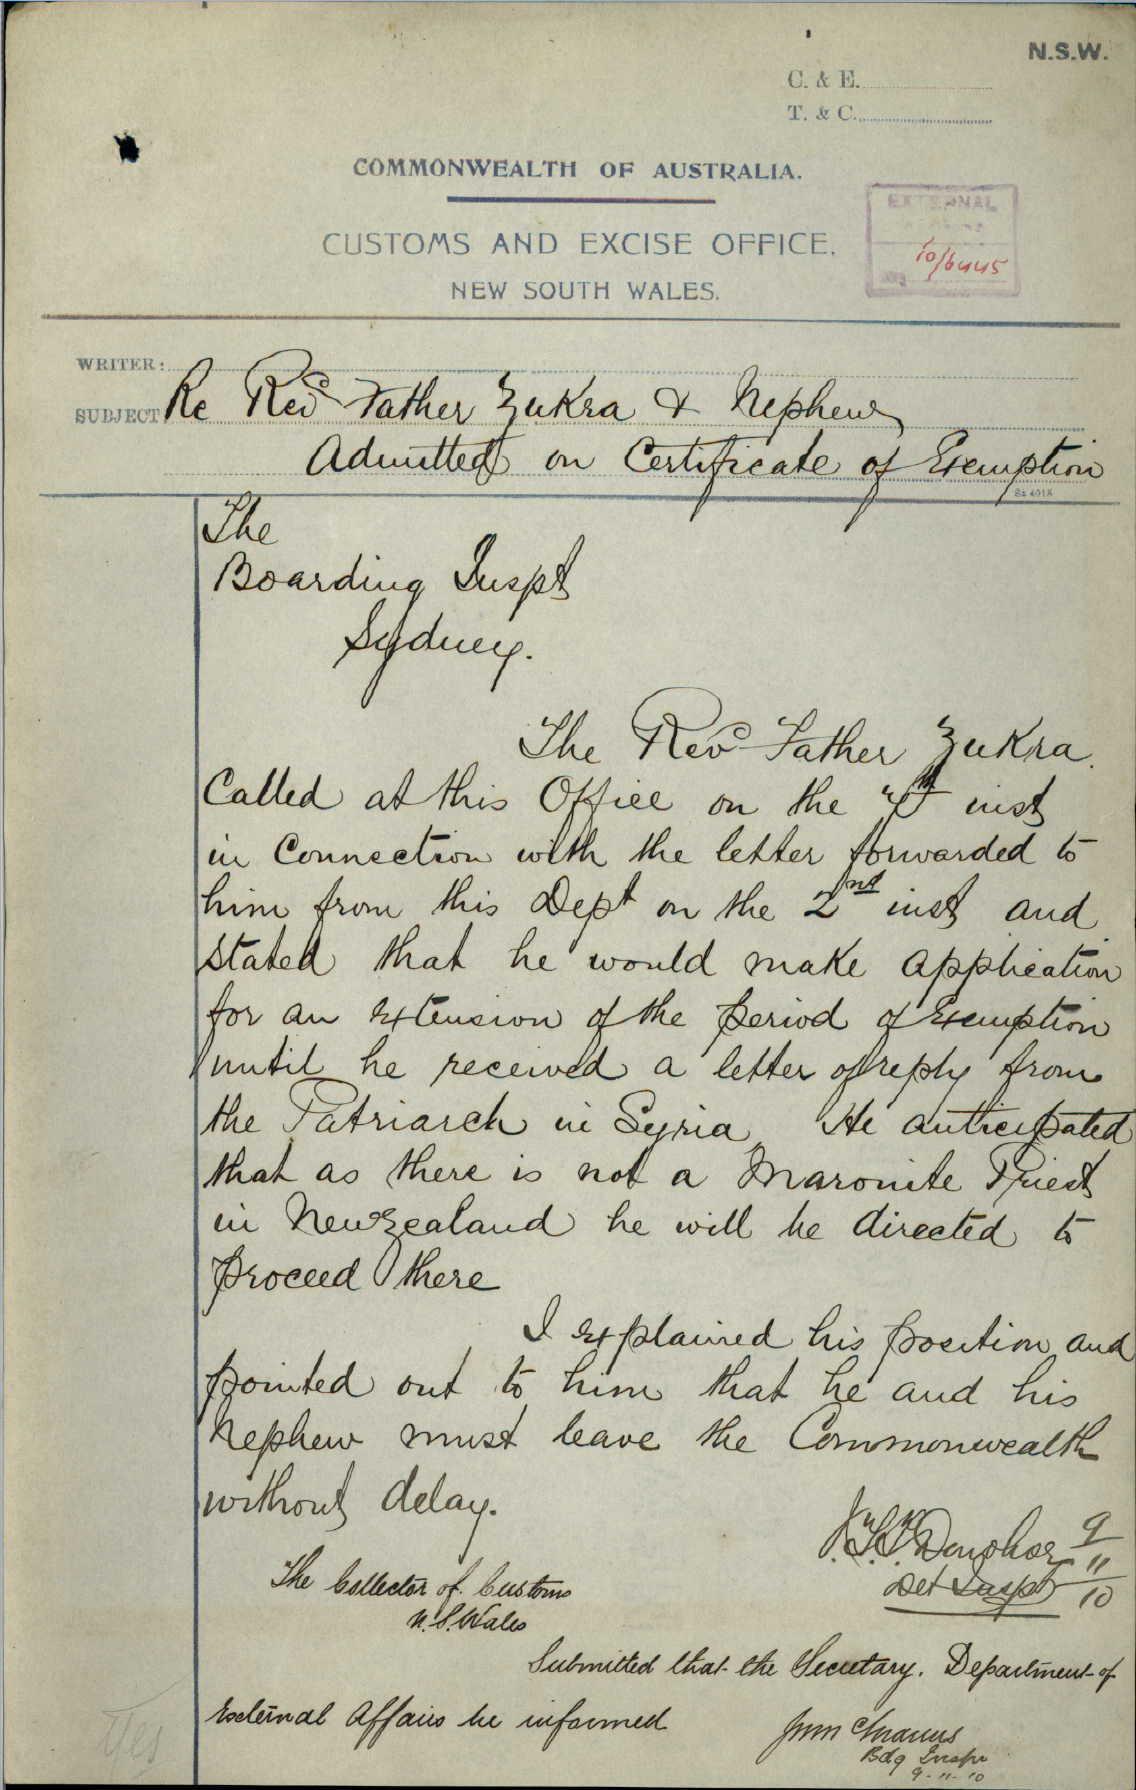 N.S.W.
C. & E.
T. & C.
COMMONWEALTH OF AUSTRALIA.
CUSTOMS AND EXCISE OFFICE.
NEW SOUTH WALES.
EXTERNAL
10/6445
WRITER:
SUBJECT Re Revd Father Zukra & Nephew
Admitted on Certificate of Exemption
The
Boarding Inspt
Sydney.
The Revd Father Zukra.
Called at this Office on the inst
in Connection with the letter forwarded to
him from this Dept on the 2nd inst and
stated that he would make application
for an extension of the period of Exemption
until he received a letter of reply from
the Patriarch in Syria He anticipated
that as there is not a Maronite Priest
in New Zealand he will be directed to
proceed there
I explained his position and
pointed out to him that he and his
Nephew must leave the Commonwealth
without delay.
Donohoe 9/11/10
Det Inspt
The Collector of Customs
N.S.Wales
Submitted that the Secretary. Department of
External Affairs be informed
Bdg Inspr
9-11-10
Yes